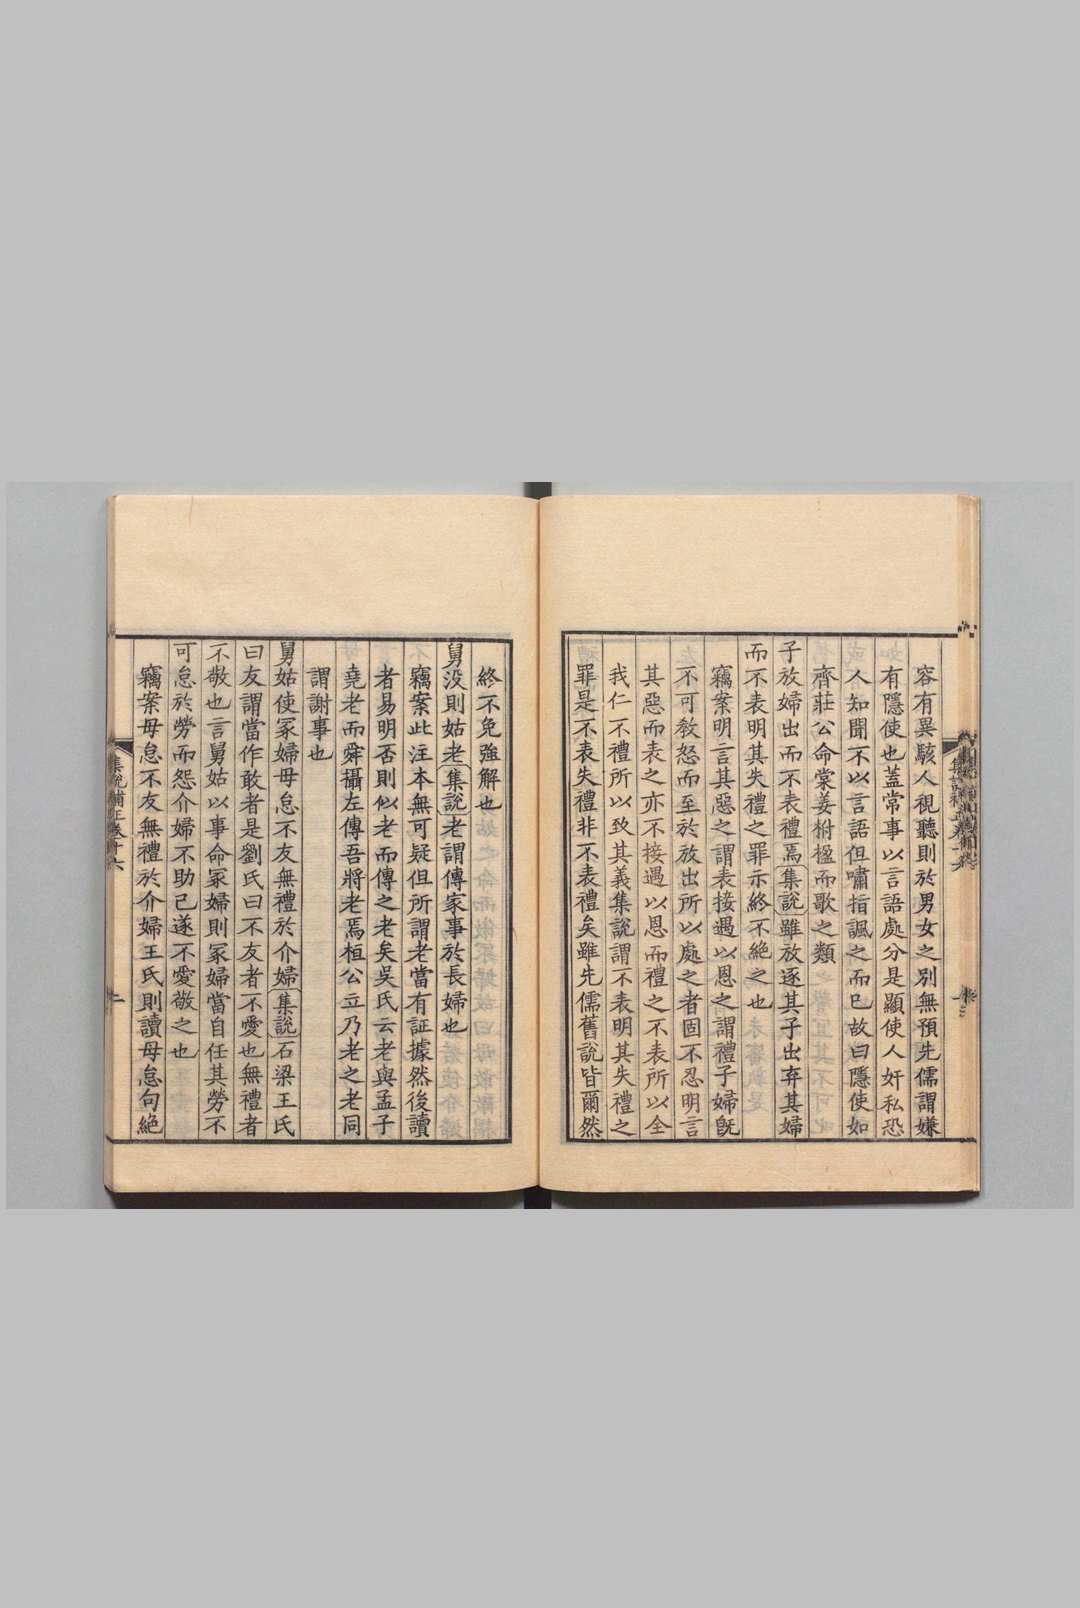 容有異駭人視聽則於男女之別無預先儒謂嫌
有隱使也蓋常事以言語處分是顯使人奸私恐
人知聞不以言語但嘯指諷之而已故曰隱使如
齊莊公命棠姜拊楹而歌之類
子放婦出而不表禮焉集說雖放逐其子出弃其婦
而不表明其失禮之罪示終不絶之也
竊案明言其惡之謂表接遇以恩之謂禮子婦既
不可敎怒而至於放出所以處之者固不忍明言
其惡而表之亦不接遇以恩而禮之不表所以全
我仁不禮所以致其義集說謂不表明其失禮之
罪是不表失禮非不表禮矣雖先儒舊說皆爾然
終不免強解也
舅没則姑老集說老謂傳家事於長婦也
竊案此注本無可疑但所謂老當有証據然後讀
者易明否則似老而傳之老矣吳氏云老與孟子
堯老而舜攝左傳吾將老焉桓公立乃老之老同
謂謝事也
舅姑使冢婦毋怠不友無禮於介婦集說石梁王氏
曰友謂當作敢者是劉氏曰不友者不愛也無禮者
不敬也言舅姑以事命冢婦則冢婦當自任其勞不
可怠於勞而怨介婦不助己遂不愛敬之也
竊案毋怠不友無禮於介婦王氏則讀毋怠句絶
集說補正卷十六
二